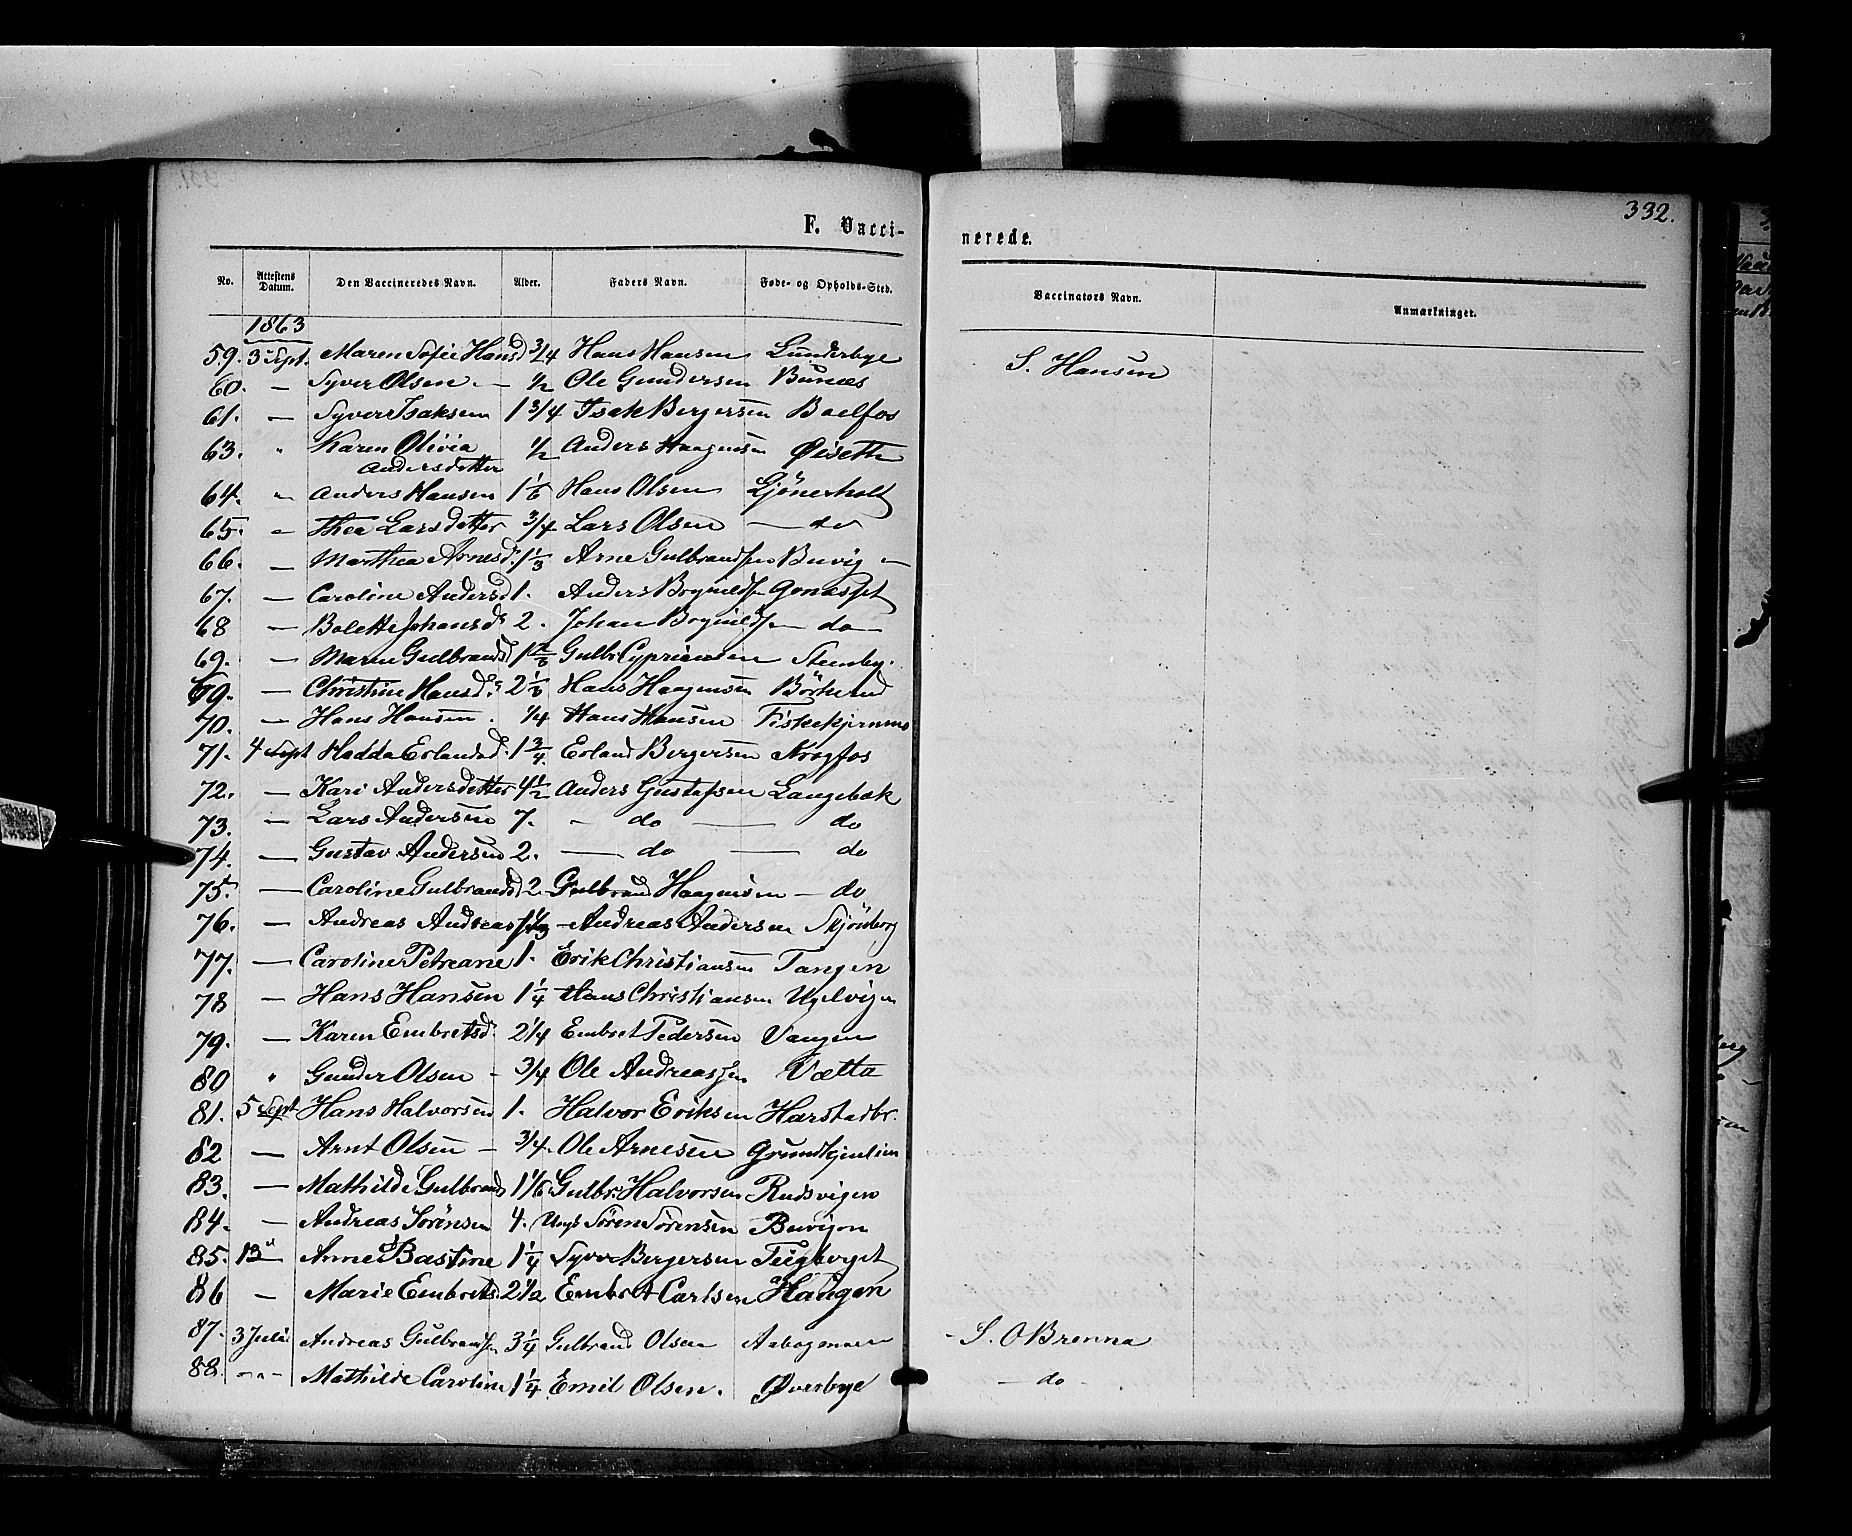 332.
F. Vacci-
nerede.
No. Attestens Datum. Den Vaccineredes Navn. Alder. Faders Navn. Føde- og Opholds-Sted. Vaccinators Navn. Anmærkninger.
1863
59. 3 Sept. Maren Sofie Hansd 3/4 Hans Hansen Lunderbye S. Hansen
60. — Syver Olsen. — 1/2 Ole Gundersen Bunæs
61. — Syver Isaksen 1 3/4 Isak Bergersen Boelfos
63. " Karen Olivia 1/2 Anders Haagensen Øisetth
Andersdatter
64. " Anders Hansen 1 1/6 Hans Olsen Gjönerholt
65. " Thea Larsdatter 3/4 Lars Olsen — do
66. — Marthea Arnesd. 1 1/3 Arne Gulbrandsen Buvig —
67. — Caroline Andersd 1. Anders
68 — Bolette Johansd. 2. Johan — do —
69. — Maren Gulbrandsd Gulbr. Cypriansen Steenby.
69. — Christine Hansd. Hans Haagensen
70. — Hans Hansen. 1/4 Hans Hansen
71. 4 Sept Hadda Erlandsd. 1 3/4 Erland Bergersen Krogfos
72. — Kari Andersdatter 4 1/2 Anders Gustafsen Langebæk
73. — Lars Andersen 7. — do — do
74. — Gustav Andersen 2. — do — do
75. — Caroline Gulbrandsd 2. Gulbrand Haagensen — do
76. — Andreas Andreassen 1 1/3 Andreas Andersen
77. — Caroline Petreane 1. Erik Christiansen Tangen
78 — Hans Hansen 1 1/4 Hans Christiansen Ugelvigen
79. — Karen Embretsd. 2 1/4 Embret Pedersen Vangen
80 " Gunder Olsen - 3/4 Ole Andreassen Vætta
81. 5 Sept Hans Halvorsen 1. Halvor Eriksen Harstadbr.
82 — Arnt Olsen — 3/4. Ole Arnesen
83. — Mathilde Gulbrands 1 1/6 Gulbr. Halvorsen Rudsvigen
84. — Andreas Sörensen 4. Sören Sörensen Buvigen
85. 13 " Anne Bastine 1 1/4 Syver Bergersen
86 — Marie Embretsd. 2 1/2 Embret Carlsen Haugen
87. 3 Juli Andreas Gulbrandsen 3 1/4 Gulbrand Olsen Aabogen - S. O Brenna
88. - " - Mathilde Caroline 1 1/4 Emil Olsen. Øverbye — do -